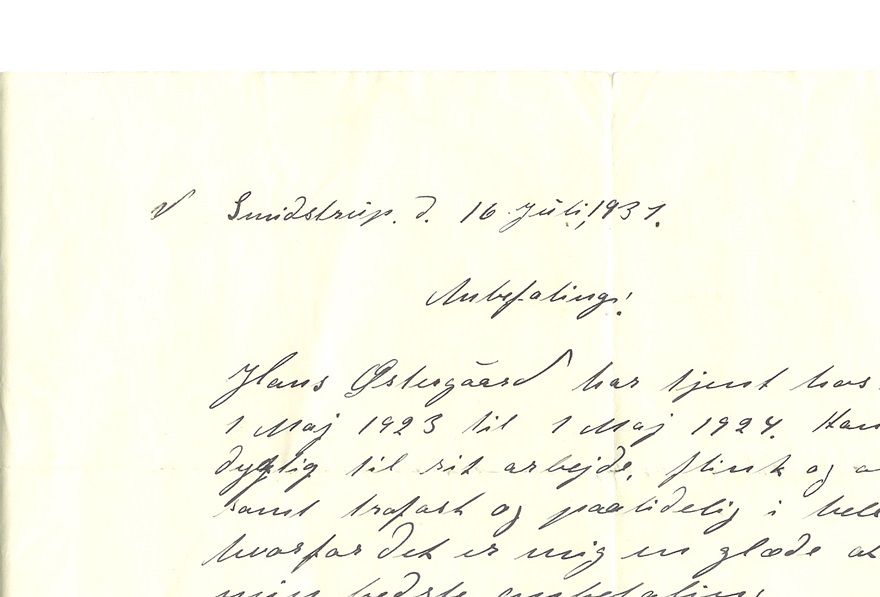 Smidstrup. d. 16. Juli, 1931.
Anbefaling!
Hans Østergaard har tjent hos
1 Maj 1923 til 1 Maj 1924. Han
dygtig til sit arbejde, flink og
samt trofast og paalidelig i
hvorfor det er mig en glæde at
min bedste anbefaling